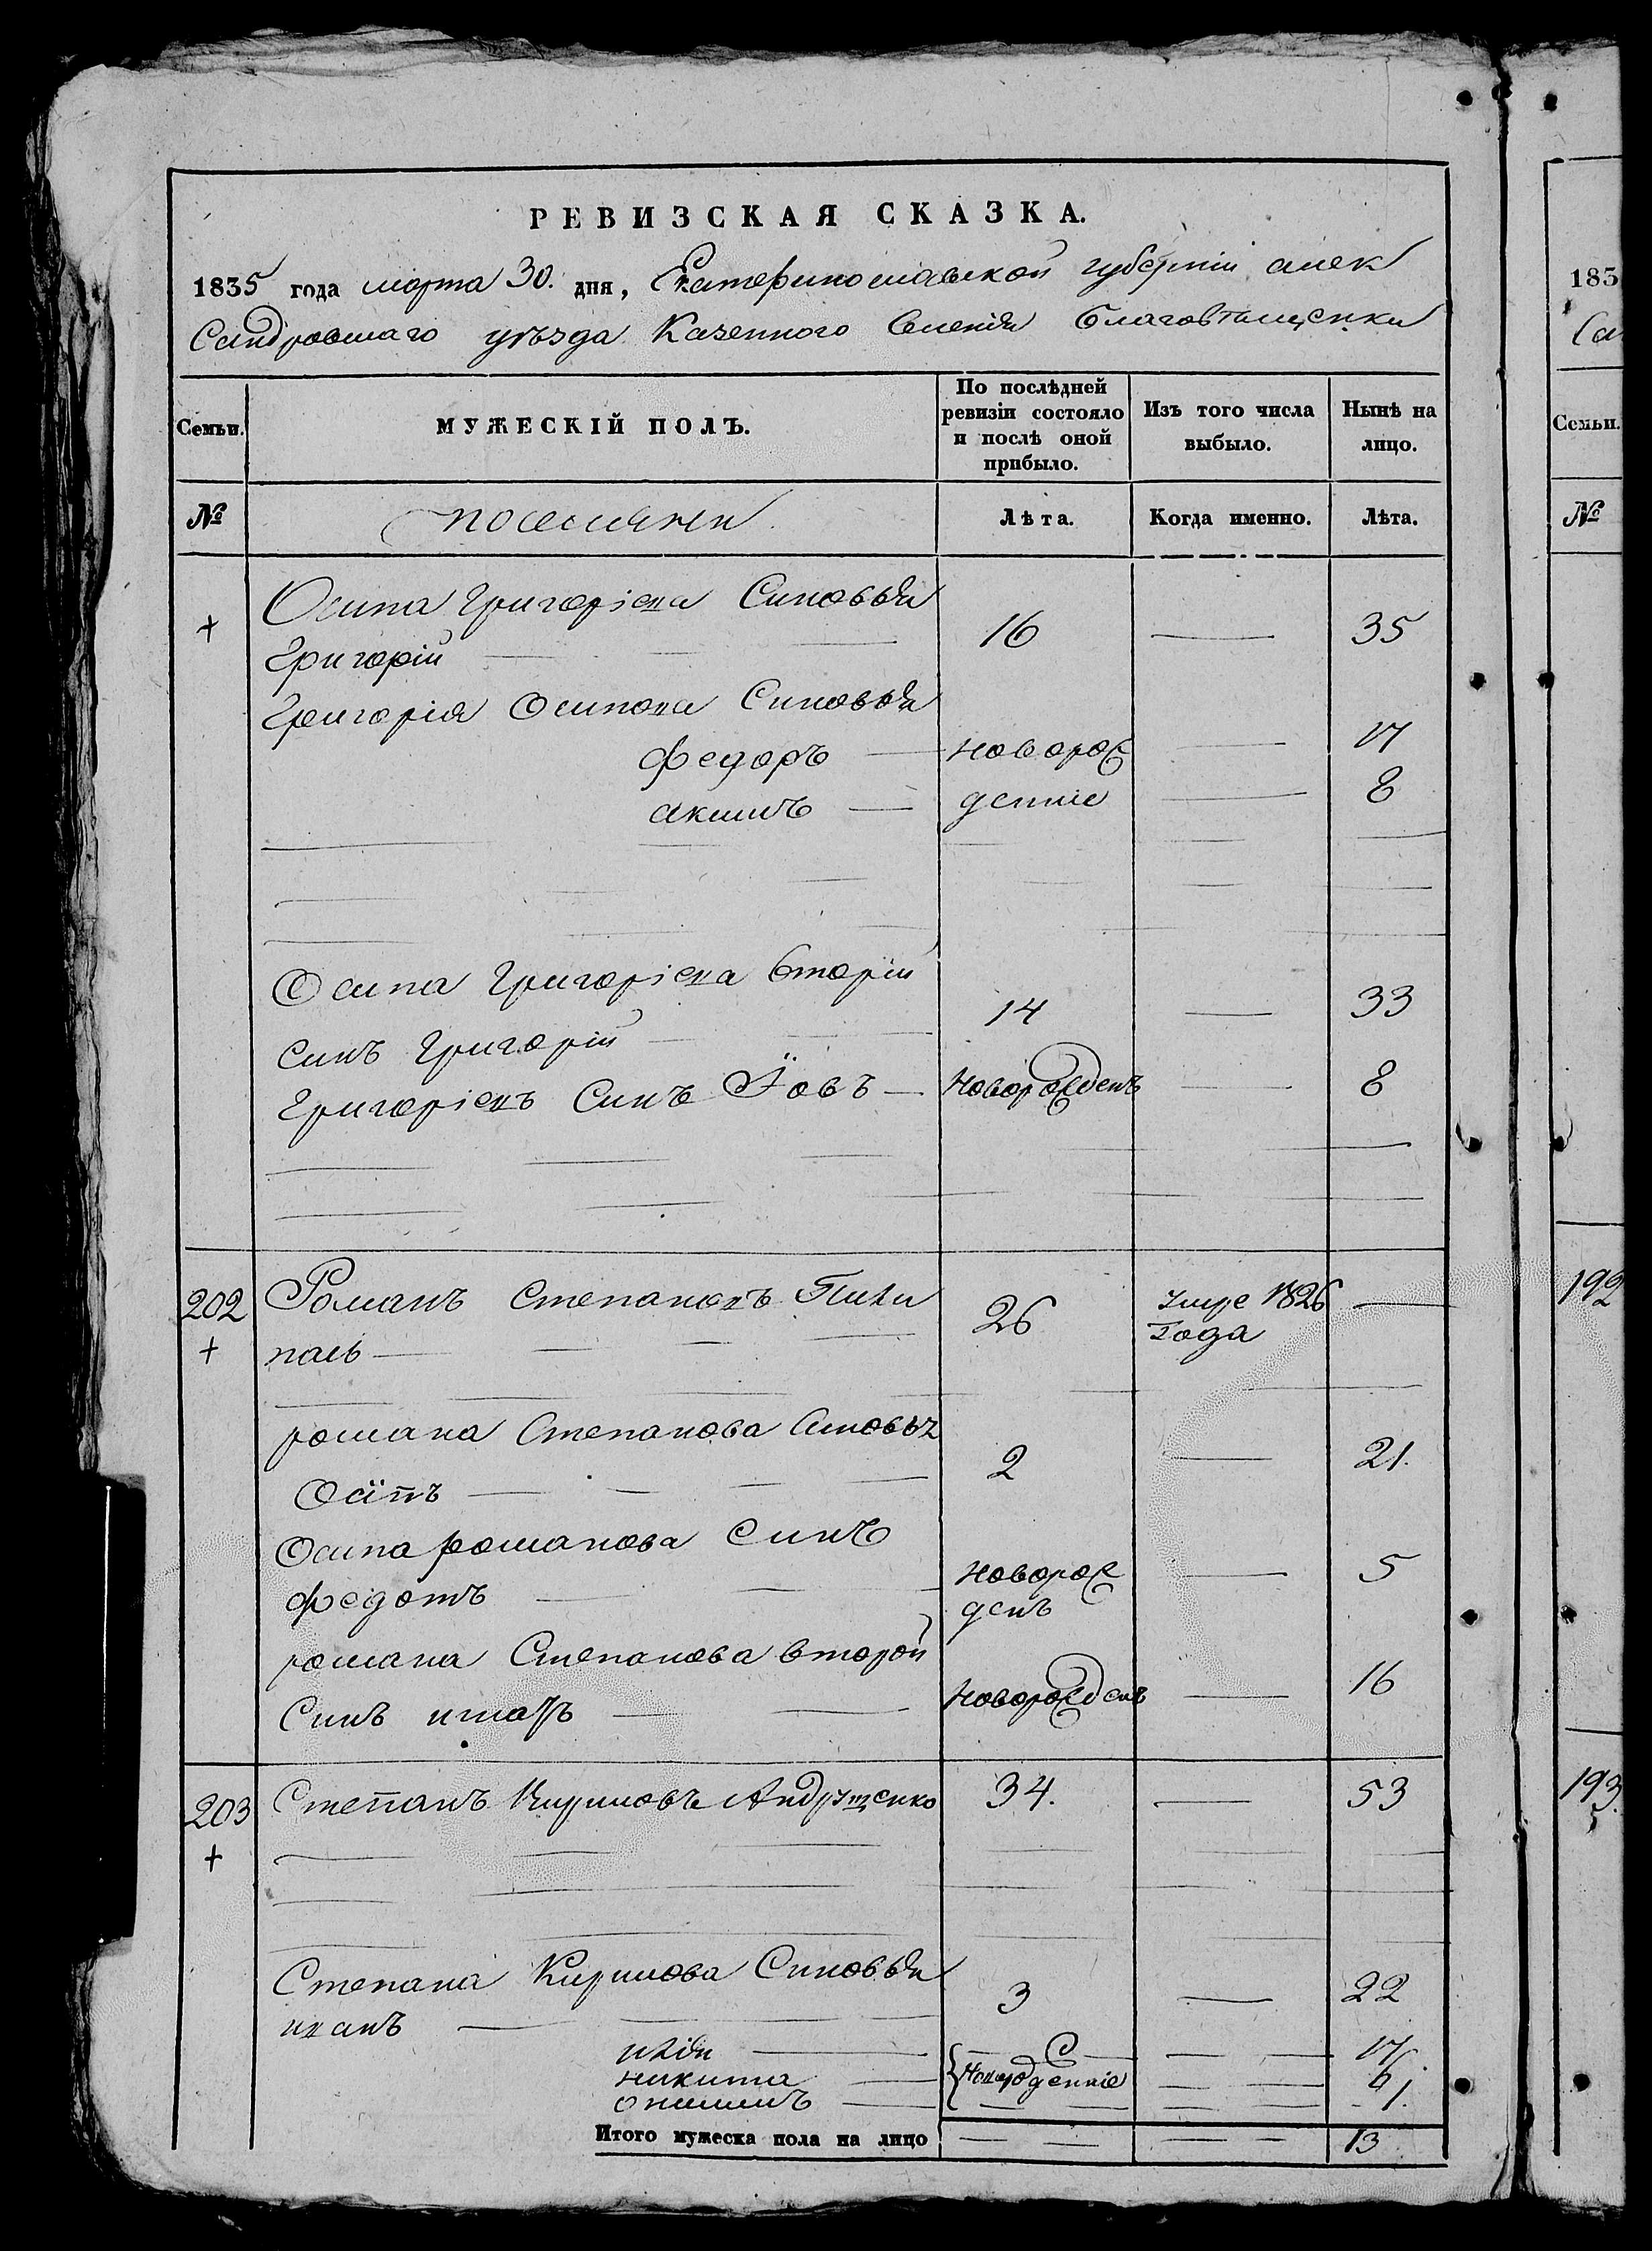 РЕВИЗСКАЯ СКАЗКА.
1835 года марта 30. дня, Екатеринославской губерніи алек
сандровшаго уѣзда Казенного Селенія благовѣщенки
Семьи.
МУЖЕСКІЙ ПОЛЪ.
По послѣдней ревизіи состояло и послѣ оной прибыло.
Изъ того числа выбыло.
Нынѣ на лицо.
№
поселяне
Лѣта.
Когда именно.
Лѣта.
+ Осипа Григоріева Синовья
Григорій 16 35
Григорія Осипова Синовья
федоръ новорож 17
акимъ деніе 8
Осипа Григоріева вторій 14 33
синъ Григорій
Григоріевъ Синъ Іовъ новорожденъ 8
202 Романъ Степановъ 26 умре 1826
+ года
романа Степанова Синовья 2 21.
Осіпъ
Осипа романова Синъ
федотъ новорож 5
денъ
романа Степанова второй
Синъ игнатъ новорожденъ 16
203 Степанъ Кириловъ Андрущенко 34. 53
+
Степана Кирилова Синовья 3 22
иванъ
илія 17
никита новорожденніе 6
онисимъ 1.
Итого мужеска пола на лицо 13
183
Са
Семьи.
№
192
193.